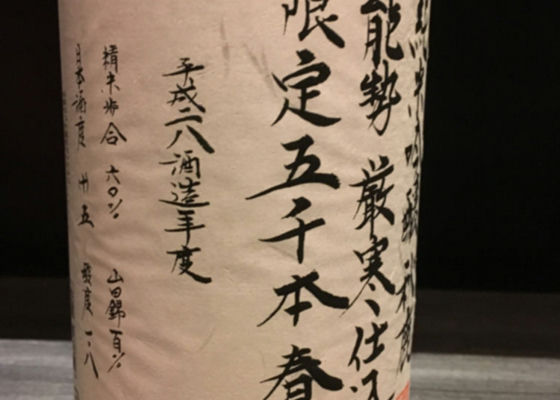 純米吟醸秋鹿
能勢 厳寒仕込
限定五千本春
平成二八酒造年度
精米歩合 六〇% 山田錦百%
日本酒度 廿五 酸度一・八